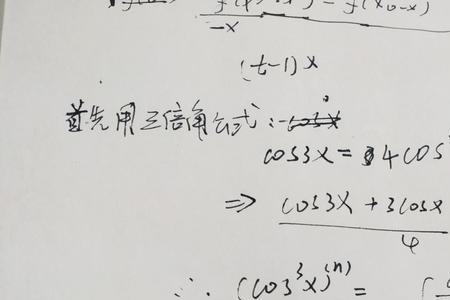 -x
(t-1)x
首先用三倍角公式:
cos3x = 4cos
⇒ cos3x + 3cosx
4
∴ (cos³x)⁽ⁿ⁾ =